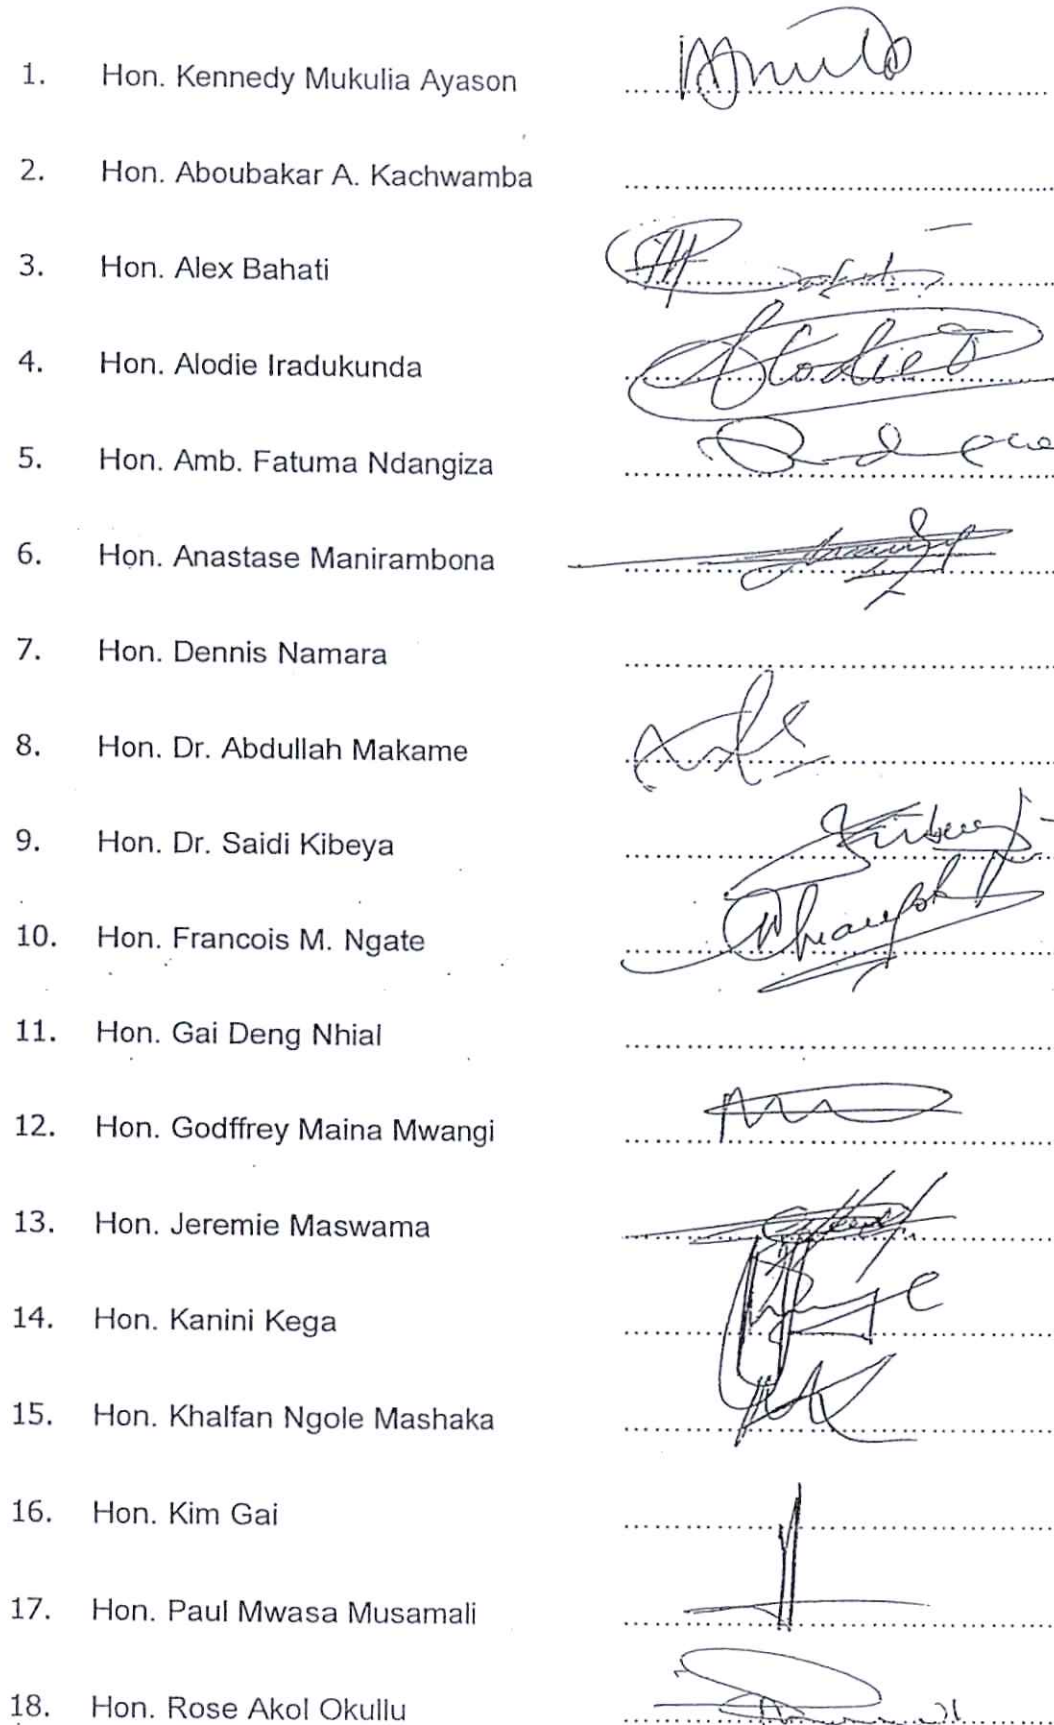 1. Hon. Kennedy Mukulia Ayason
2. Hon. Aboubakar A. Kachwamba
3. Hon. Alex Bahati
4. Hon. Alodie Iradukunda
5. Hon. Amb. Fatuma Ndangiza
6. Hon. Anastase Manirambona
7. Hon. Dennis Namara
8. Hon. Dr. Abdullah Makame
9. Hon. Dr. Saidi Kibeya
10. Hon. Francois M. Ngate
11. Hon. Gai Deng Nhial
12. Hon. Godffrey Maina Mwangi
13. Hon. Jeremie Maswama
14. Hon. Kanini Kega
15. Hon. Khalfan Ngole Mashaka
16. Hon. Kim Gai
17. Hon. Paul Mwasa Musamali
18. Hon. Rose Akol Okullu